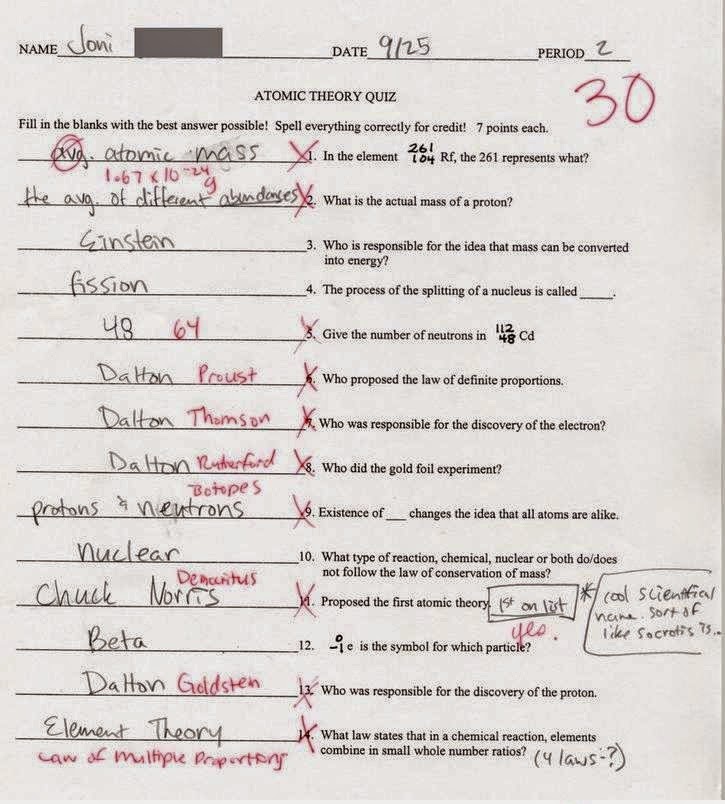 NAME Joni DATE 9/25 PERIOD 2
ATOMIC THEORY QUIZ
30
Fill in the blanks with the best answer possible! Spell everything correctly for credit! 7 points each.
avg. atomic mass 1. In the element 261 104 Rf, the 261 represents what?
1.67 x 10 -24 g
the avg. of different abundanses 2. What is the actual mass of a proton?
Einstein 3. Who is responsible for the idea that mass can be converted
into energy?
fission 4. The process of the splitting of a nucleus is called _____.
48 64 5. Give the number of neutrons in 112 48 Cd
Dalton Proust 6. Who proposed the law of definite proportions.
Dalton Thomson 7. Who was responsible for the discovery of the electron?
Dalton Rutherford 8. Who did the gold foil experiment?
Isotopes
protons & neutrons 9. Existence of ___ changes the idea that all atoms are alike.
nuclear 10. What type of reaction, chemical, nuclear or both do/does
not follow the law of conservation of mass?
Democritus
Chuck Norris 11. Proposed the first atomic theory. 1st on list * cool scientifial
name. sort of
like socrotis is...
yes.
Beta 12. 0 -1 e is the symbol for which particle?
Dalton Goldstein 13. Who was responsible for the discovery of the proton.
Element Theory 14. What law states that in a chemical reaction, elements
combine in small whole number ratios? (4 laws-?)
Law of Multiple Proportions